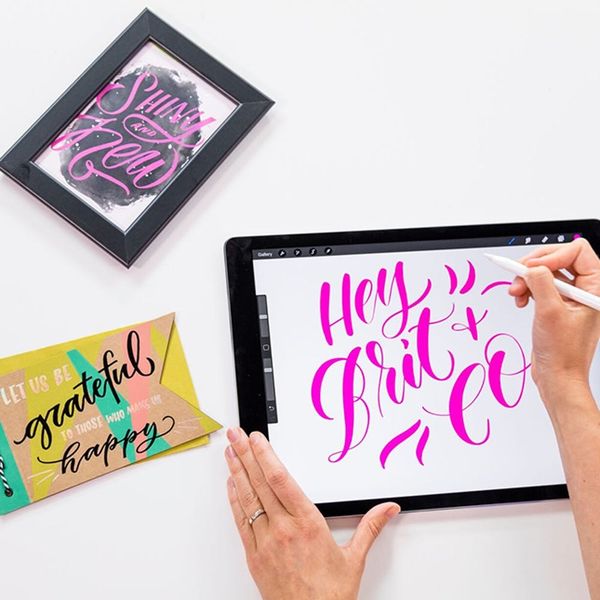 SHINY
AND
New
Gallery
Hey
Brit +
Co
LET US BE
grateful
TO THOSE WHO MAKE US
happy